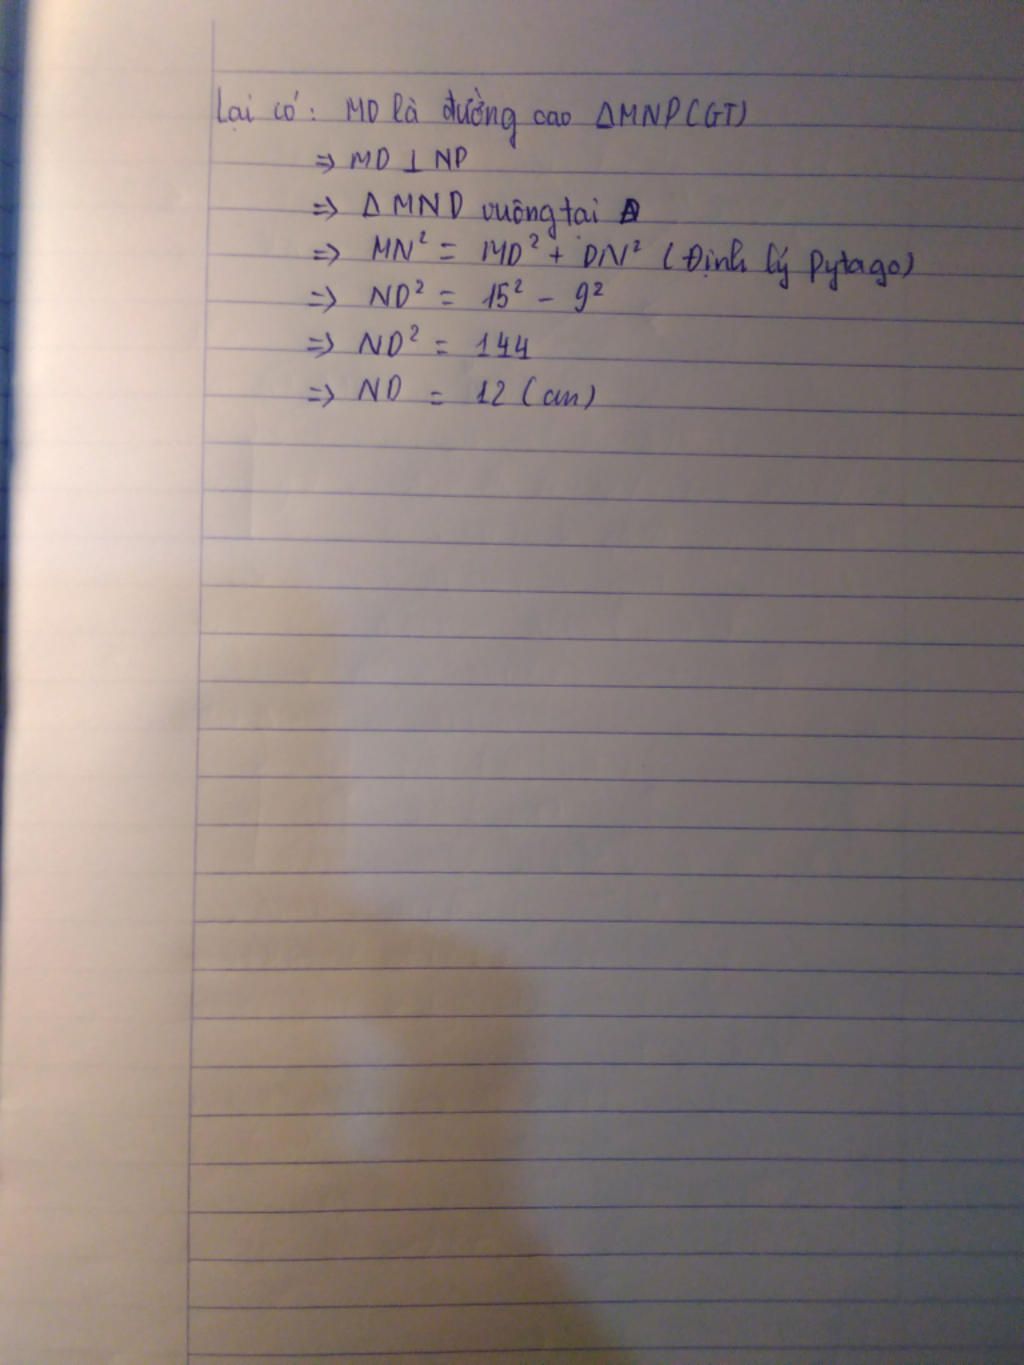 Lại có: MD là đường cao ΔMNP (GT)
⇒ MD ⊥ NP
⇒ ΔMND vuông tại D
⇒ MN² = MD² + DN² (Định lý Pytago)
⇒ ND² = 15² - 9²
⇒ ND² = 144
⇒ ND = 12 (cm)